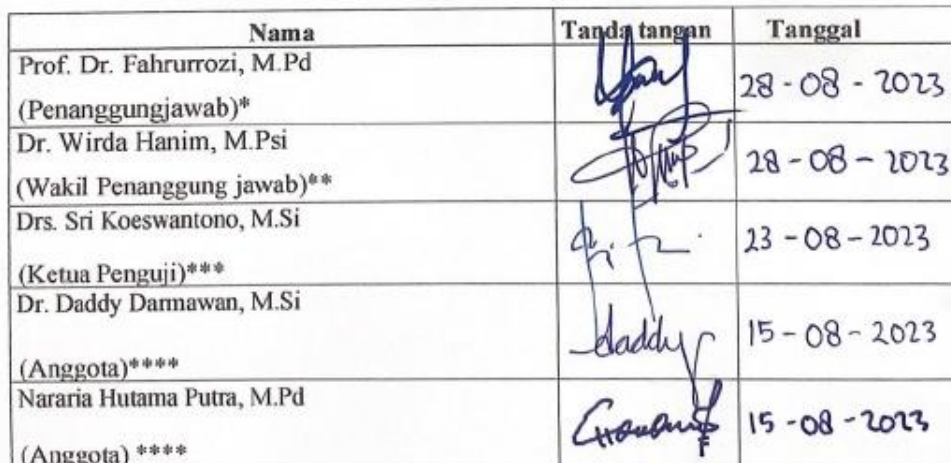 Nama Tanda tangan Tanggal
Prof. Dr. Fahrurrozi, M.Pd
(Penanggungjawab)* 28 - 08 - 2023
Dr. Wirda Hanim, M.Psi
(Wakil Penanggung jawab)** 28 - 08 - 2023
Drs. Sri Koeswantono, M.Si
(Ketua Penguji)*** 23 - 08 - 2023
Dr. Daddy Darmawan, M.Si
daddy 15 - 08 - 2023
(Anggota)****
Nararia Hutama Putra, M.Pd
15 - 08 - 2023
(Anggota) ****